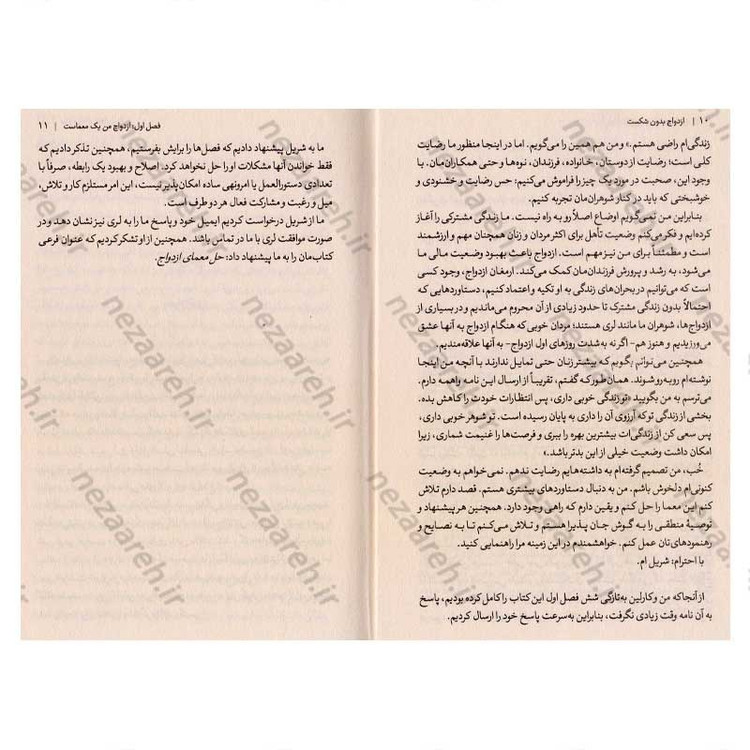 ۱۰ | ازدواج بدون شکست
زندگی‌ام راضی هستم.» و من هم همین را می‌گویم. اما در اینجا منظور ما رضایت
کلی است؛ رضایت از دوستان، خانواده، فرزندان، نوه‌ها و حتی همکاران‌مان. با
وجود این، صحبت در مورد یک چیز را فراموش می‌کنیم: حس رضایت و خشنودی و
خوشبختی که باید در کنار شوهران‌مان تجربه کنیم.
بنابراین من نمی‌گویم اوضاع اصلاً رو به راه نیست. ما زندگی مشترکی را آغاز
کرده‌ایم و فکر می‌کنم وضعیت تأهل برای اکثر مردان و زنان همچنان مهم و ارزشمند
است و مطمئناً برای من نیز مهم است. ازدواج باعث بهبود وضعیت مالی ما
می‌شود، به رشد و پرورش فرزندان‌مان کمک می‌کند. ارمغان ازدواج، وجود کسی
است که می‌توانیم در بحران‌های زندگی به او تکیه و اعتماد کنیم، دستاوردهایی که
احتمالاً بدون زندگی مشترک تا حدود زیادی از آن محروم می‌ماندیم و در بسیاری از
ازدواج‌ها، شوهران ما مانند لری هستند؛ مردان خوبی که هنگام ازدواج به آنها عشق
می‌ورزیدیم و هنوز هم- اگر نه به‌شدت روزهای اول ازدواج- به آنها علاقه‌مندیم.
همچنین می‌توانم بگویم که بیشتر زنان حتی تمایل ندارند با آنچه من اینجا
نوشته‌ام روبه‌رو شوند. همان‌طور که گفتم، تقریباً از ارسال این نامه واهمه دارم.
می‌ترسم به من بگویید «تو زندگی خوبی داری، پس انتظارات خودت را کاهش بده.
بخشی از زندگی تو که آرزوی آن را داری به پایان رسیده است. تو شوهر خوبی داری،
پس سعی کن از زندگی‌ات بیشترین بهره را ببری و فرصت‌ها را غنیمت شماری، زیرا
امکان داشت وضعیت خیلی از این بدتر باشد.»
خُب، من تصمیم گرفته‌ام به داشته‌هایم رضایت ندهم. نمی‌خواهم به وضعیت
کنونی‌ام دلخوش باشم. من به دنبال دستاوردهای بیشتری هستم. قصد دارم تلاش
کنم این معما را حل کنم و یقین دارم که راهی وجود دارد. همچنین هر پیشنهاد و
توصیهٔ منطقی را به گوش جان پذیرا هستم و تلاش می‌کنم تا به نصایح و
رهنمودهای‌تان عمل کنم. خواهشمندم در این زمینه مرا راهنمایی کنید.
با احترام: شریل ام.
از آنجا که من و کارلین به‌تازگی شش فصل اول این کتاب را کامل کرده بودیم، پاسخ
به آن نامه وقت زیادی نگرفت، بنابراین به‌سرعت پاسخ خود را ارسال کردیم.
فصل اول: ازدواج من یک معماست | ۱۱
ما به شریل پیشنهاد دادیم که فصل‌ها را برایش بفرستیم، همچنین تذکر دادیم که
فقط خواندن آنها مشکلات او را حل نخواهد کرد: اصلاح و بهبود یک رابطه، صرفاً با
تعدادی دستورالعمل یا امرونهی ساده امکان‌پذیر نیست، این امر مستلزم کار و تلاش،
میل و رغبت و مشارکت فعال هر دو طرف است.
ما از شریل درخواست کردیم ایمیل خود و پاسخ ما را به لری نیز نشان دهد و در
صورت موافقت لری با ما در تماس باشد. همچنین از او تشکر کردیم که عنوان فرعی
کتاب‌مان را به ما پیشنهاد داد: حل معمای ازدواج.
nezaareh.ir
nezaareh.ir
nezaareh.ir
nezaareh.ir
nezaareh.ir
nezaareh.ir
nezaareh.ir
nezaareh.ir
nezaareh.ir